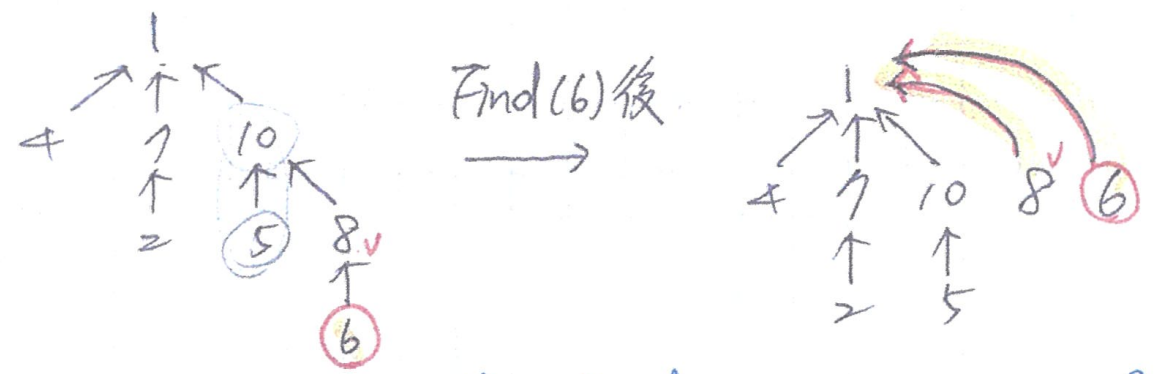 1
4 7 10
2 5 8 v
6
Find(6)後
1
4 7 10 8 v 6
2 5